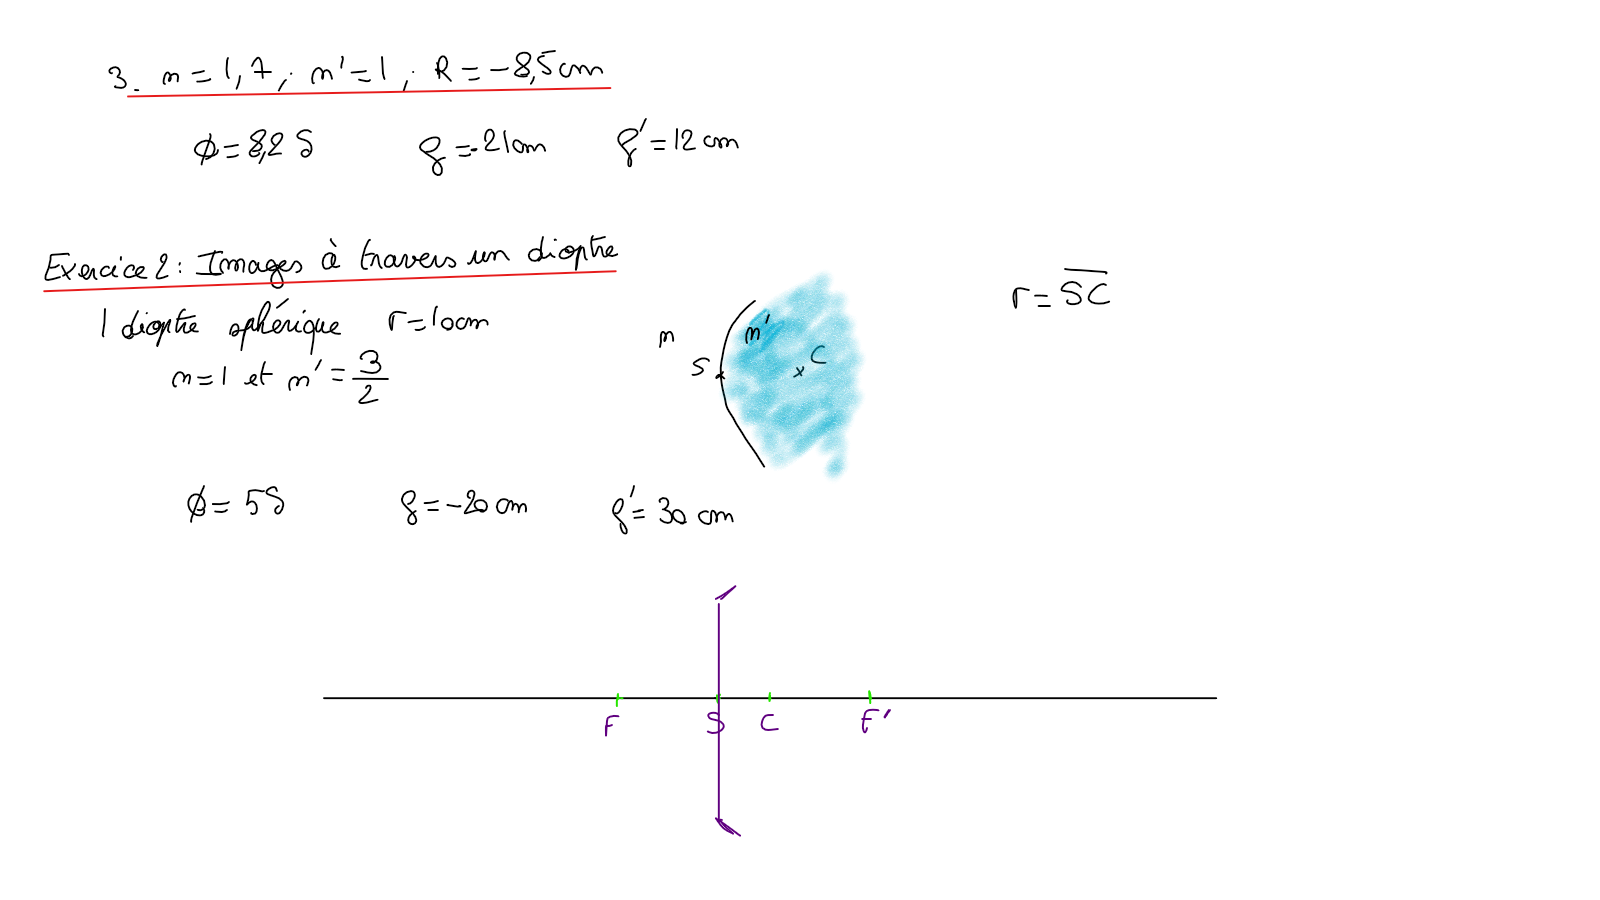 3. n = 1,7 ; n' = 1 ; R = -8,5 cm
ϕ = 8,2 δ f = -21 cm f' = 12 cm
Exercice 2 : Images à travers un dioptre
1 dioptre sphérique r = 10 cm
n = 1 et n' = 3/2
n n' S C
r = \overline{SC}
ϕ = 5 δ f = -20 cm f' = 30 cm
F S C F'